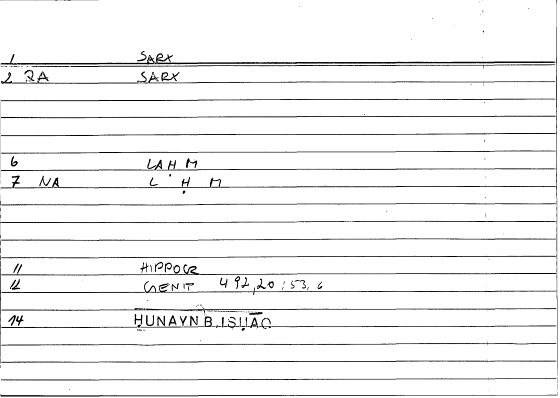 1 SARX
2 RA SARX
6 LAḤM
7 NA L Ḥ M
11 HIPPOCR
12 GENIT 492,20 : 53,6
14 ḤUNAYN B. ISḤĀQ